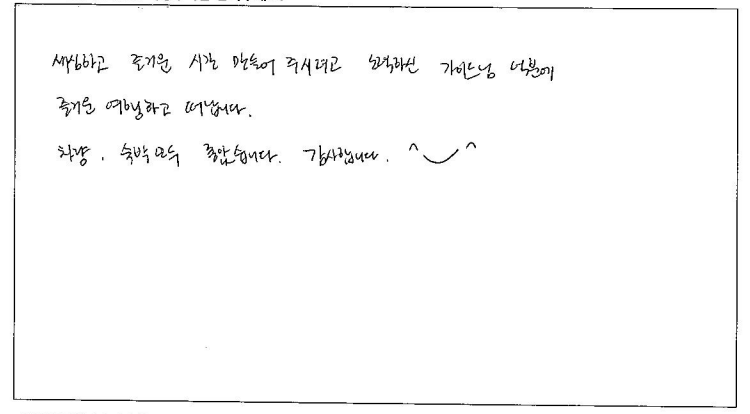 세심하고 즐거운 시간 만들어 주시려고 노력하신 가이드님 덕분에
즐거운 여행하고 떠납니다.
차량, 숙박 모두 좋았습니다. 감사합니다. ^‿^